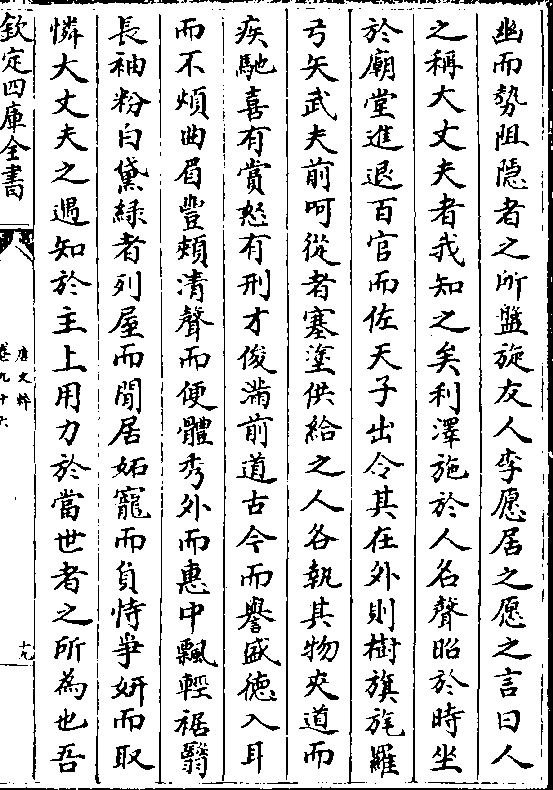 幽而勢阻隱者之所盤旋友人李愿居之愿之言曰人
之稱大丈夫者我知之矣利澤施於人名聲昭於時坐
於廟堂進退百官而佐天子出令其在外則樹旗旄羅
弓矢武夫前呵從者塞塗供給之人各執其物夾道而
疾馳喜有賞怒有刑才俊滿前道古今而譽盛德入耳
而不煩曲眉豐頰清聲而便體秀外而惠中飄輕裾翳
長袖粉白黛緑者列屋而閒居妬寵而負恃爭妍而取
憐大丈夫之遇知於主上用力於當世者之所為也吾
欽定四庫全書
唐文粹
卷九十六
十九